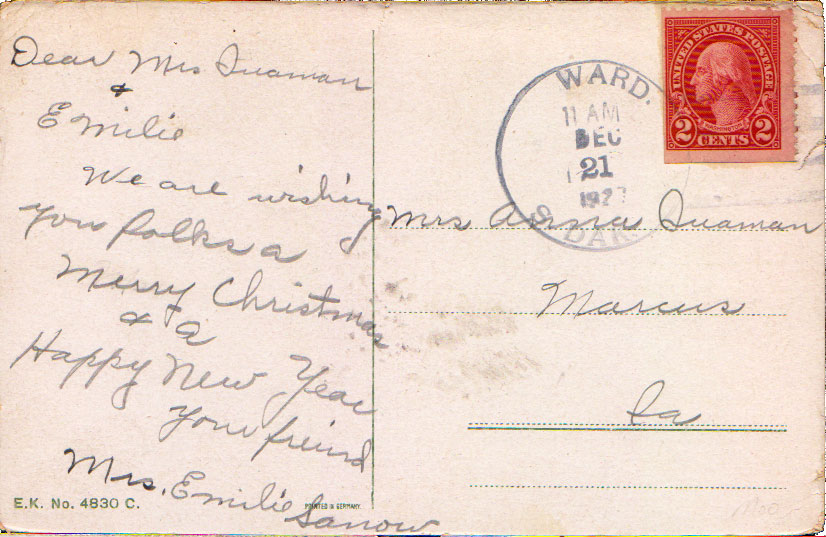 Dear Mrs Suaman
&
Emilie
We are wishing
you folks a
Merry Christmas
& a
Happy New Year
your friend
Mrs. Emilie
Sanow
E.K. No. 4830 C.
PRINTED IN GERMANY.
WARD.
11 AM
DEC
21
1927
S. DAK.
UNITED STATES POSTAGE
WASHINGTON
2 CENTS 2
Mrs Anna Suaman
Marcus
Ia